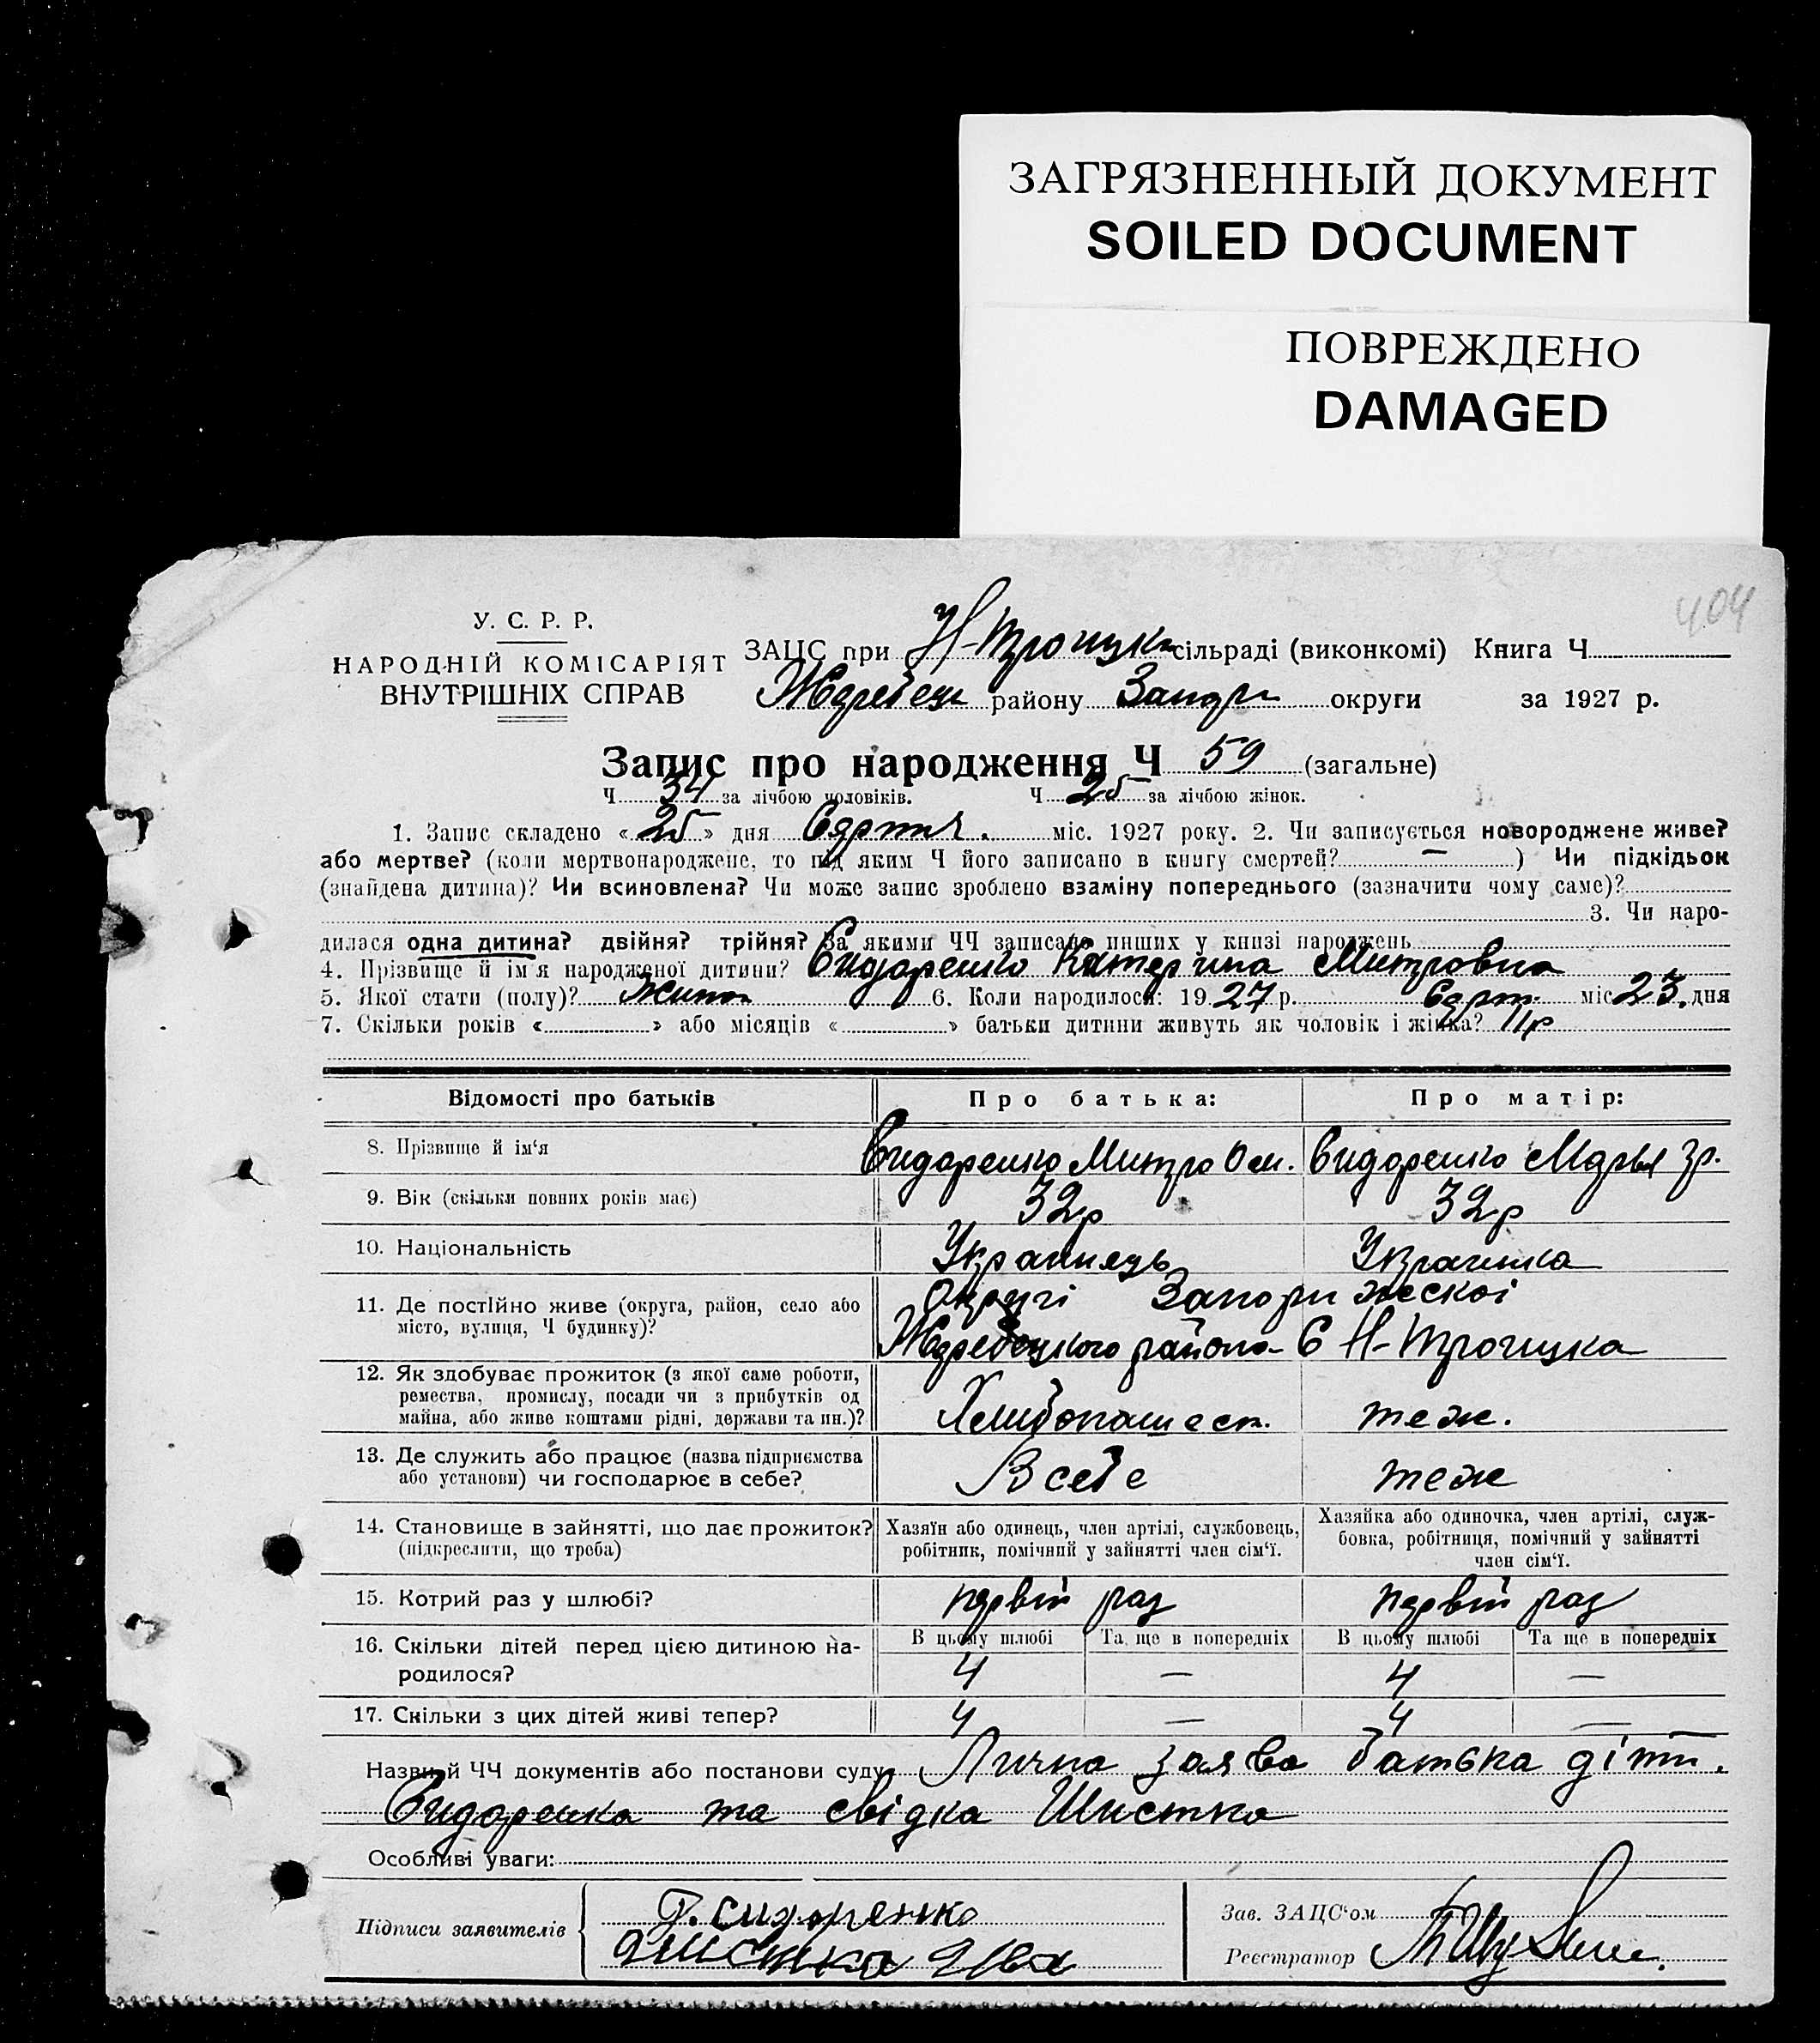 ЗАГРЯЗНЕННЫЙ ДОКУМЕНТ
SOILED DOCUMENT
ПОВРЕЖДЕНО
DAMAGED
404
У. С. Р. Р.
НАРОДНІЙ КОМІСАРІЯТ
ВНУТРІШНІХ СПРАВ
ЗАЦС при Н-Троицка сільраді (виконкомі) Книга Ч
Жеребец району Запор округи за 1927 р.
Запис про народження Ч 59 (загальне)
Ч 34 за лічбою чоловіків. Ч 25 за лічбою жінок.
1. Запис складено « 25 » дня Серпня. міс. 1927 року. 2. Чи записується новороджене живе?
або мертве? (коли мертвонароджене, то під яким Ч його записано в книгу смертей? — ) Чи підкідьок
(знайдена дитина)? Чи всиновлена? Чи може запис зроблено взаміну попереднього (зазначити чому саме)?
3. Чи наро-
дилася одна дитина? двійня? трійня? За якими ЧЧ записано инших у книзі народжень
4. Прізвище й ім'я народженої дитини? Сидоренко Катерина Митровна
5. Якої стати (полу)? Жино 6. Коли народилося: 19 27 р. Серп. міс 23. дня
7. Скільки років « » або місяців « » батьки дитини живуть як чоловік і жінка? 11р
Відомості про батьків Про батька: Про матір:
8. Прізвище й ім'я Сидоренко Митро Сем. Сидоренко Марья Гр.
9. Вік (скільки повних років має) 32р 32р
10. Національність Украинець Украинка
11. Де постійно живе (округа, район, село або Округі Запорижескоі
місто, вулиця, Ч будинку)? Жеребецкого района С Н-Троицка
12. Як здобуває прожиток (з якої саме роботи,
ремества, промислу, посади чи з прибутків од
майна, або живе коштами рідні, держави та ин.)? Хлибопашест. теж.
13. Де служить або працює (назва підприємства
або установи) чи господарює в себе? В себе теж
14. Становище в зайнятті, що дає прожиток? Хазяїн або одинець, член артілі, службовець, Хазяйка або одиночка, член артілі, служ-
(підкреслити, що треба) робітник, помічний у зайнятті член сім'ї. бовка, робітниця, помічний у зайнятті
член сім'ї.
15. Котрий раз у шлюбі? первій раз первій раз
16. Скільки дітей перед цією дитиною на- В цьому шлюбі Та ще в попередніх В цьому шлюбі Та ще в попередніх
родилося? 4 — 4 —
17. Скільки з цих дітей живі тепер? 4 — 4 —
Назви й ЧЧ документів або постанови суду Лична заява батька діти.
Сидоренка та свідка Шистка
Особливі уваги:
Підписи заявителів Сидоренко
Зав. ЗАЦС'ом
Реєстратор